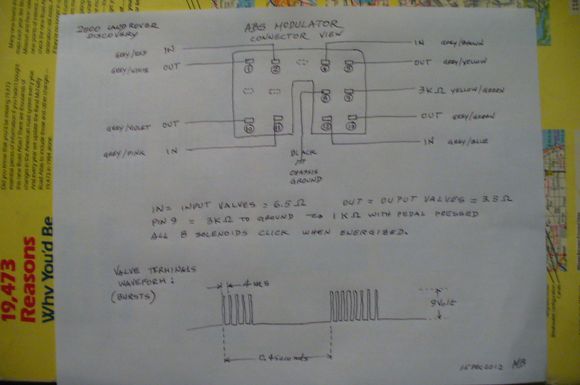 2000 LAND ROVER
DISCOVERY
ABS MODULATOR
CONNECTOR VIEW
GREY/RED IN
IN GREY/BROWN
GREY/WHITE OUT
OUT GREY/YELLOW
3KΩ YELLOW/GREEN
GREY/VIOLET OUT
OUT GREY/GREEN
GREY/PINK IN
IN GREY/BLUE
BLACK
CHASSIS
GROUND
IN = INPUT VALVES = 6.5Ω OUT = OUPUT VALVES = 3.3Ω
PIN 9 = 3KΩ TO GROUND 1KΩ WITH PEDAL PRESSED
ALL 8 SOLENOIDS CLICK WHEN ENERGIZED.
VALVE TERMINALS
WAVEFORM:
(BURSTS)
4 ms
9Volt
0.4 seconds
15 DEC 2012
19,473
Reasons
Why You'd Be